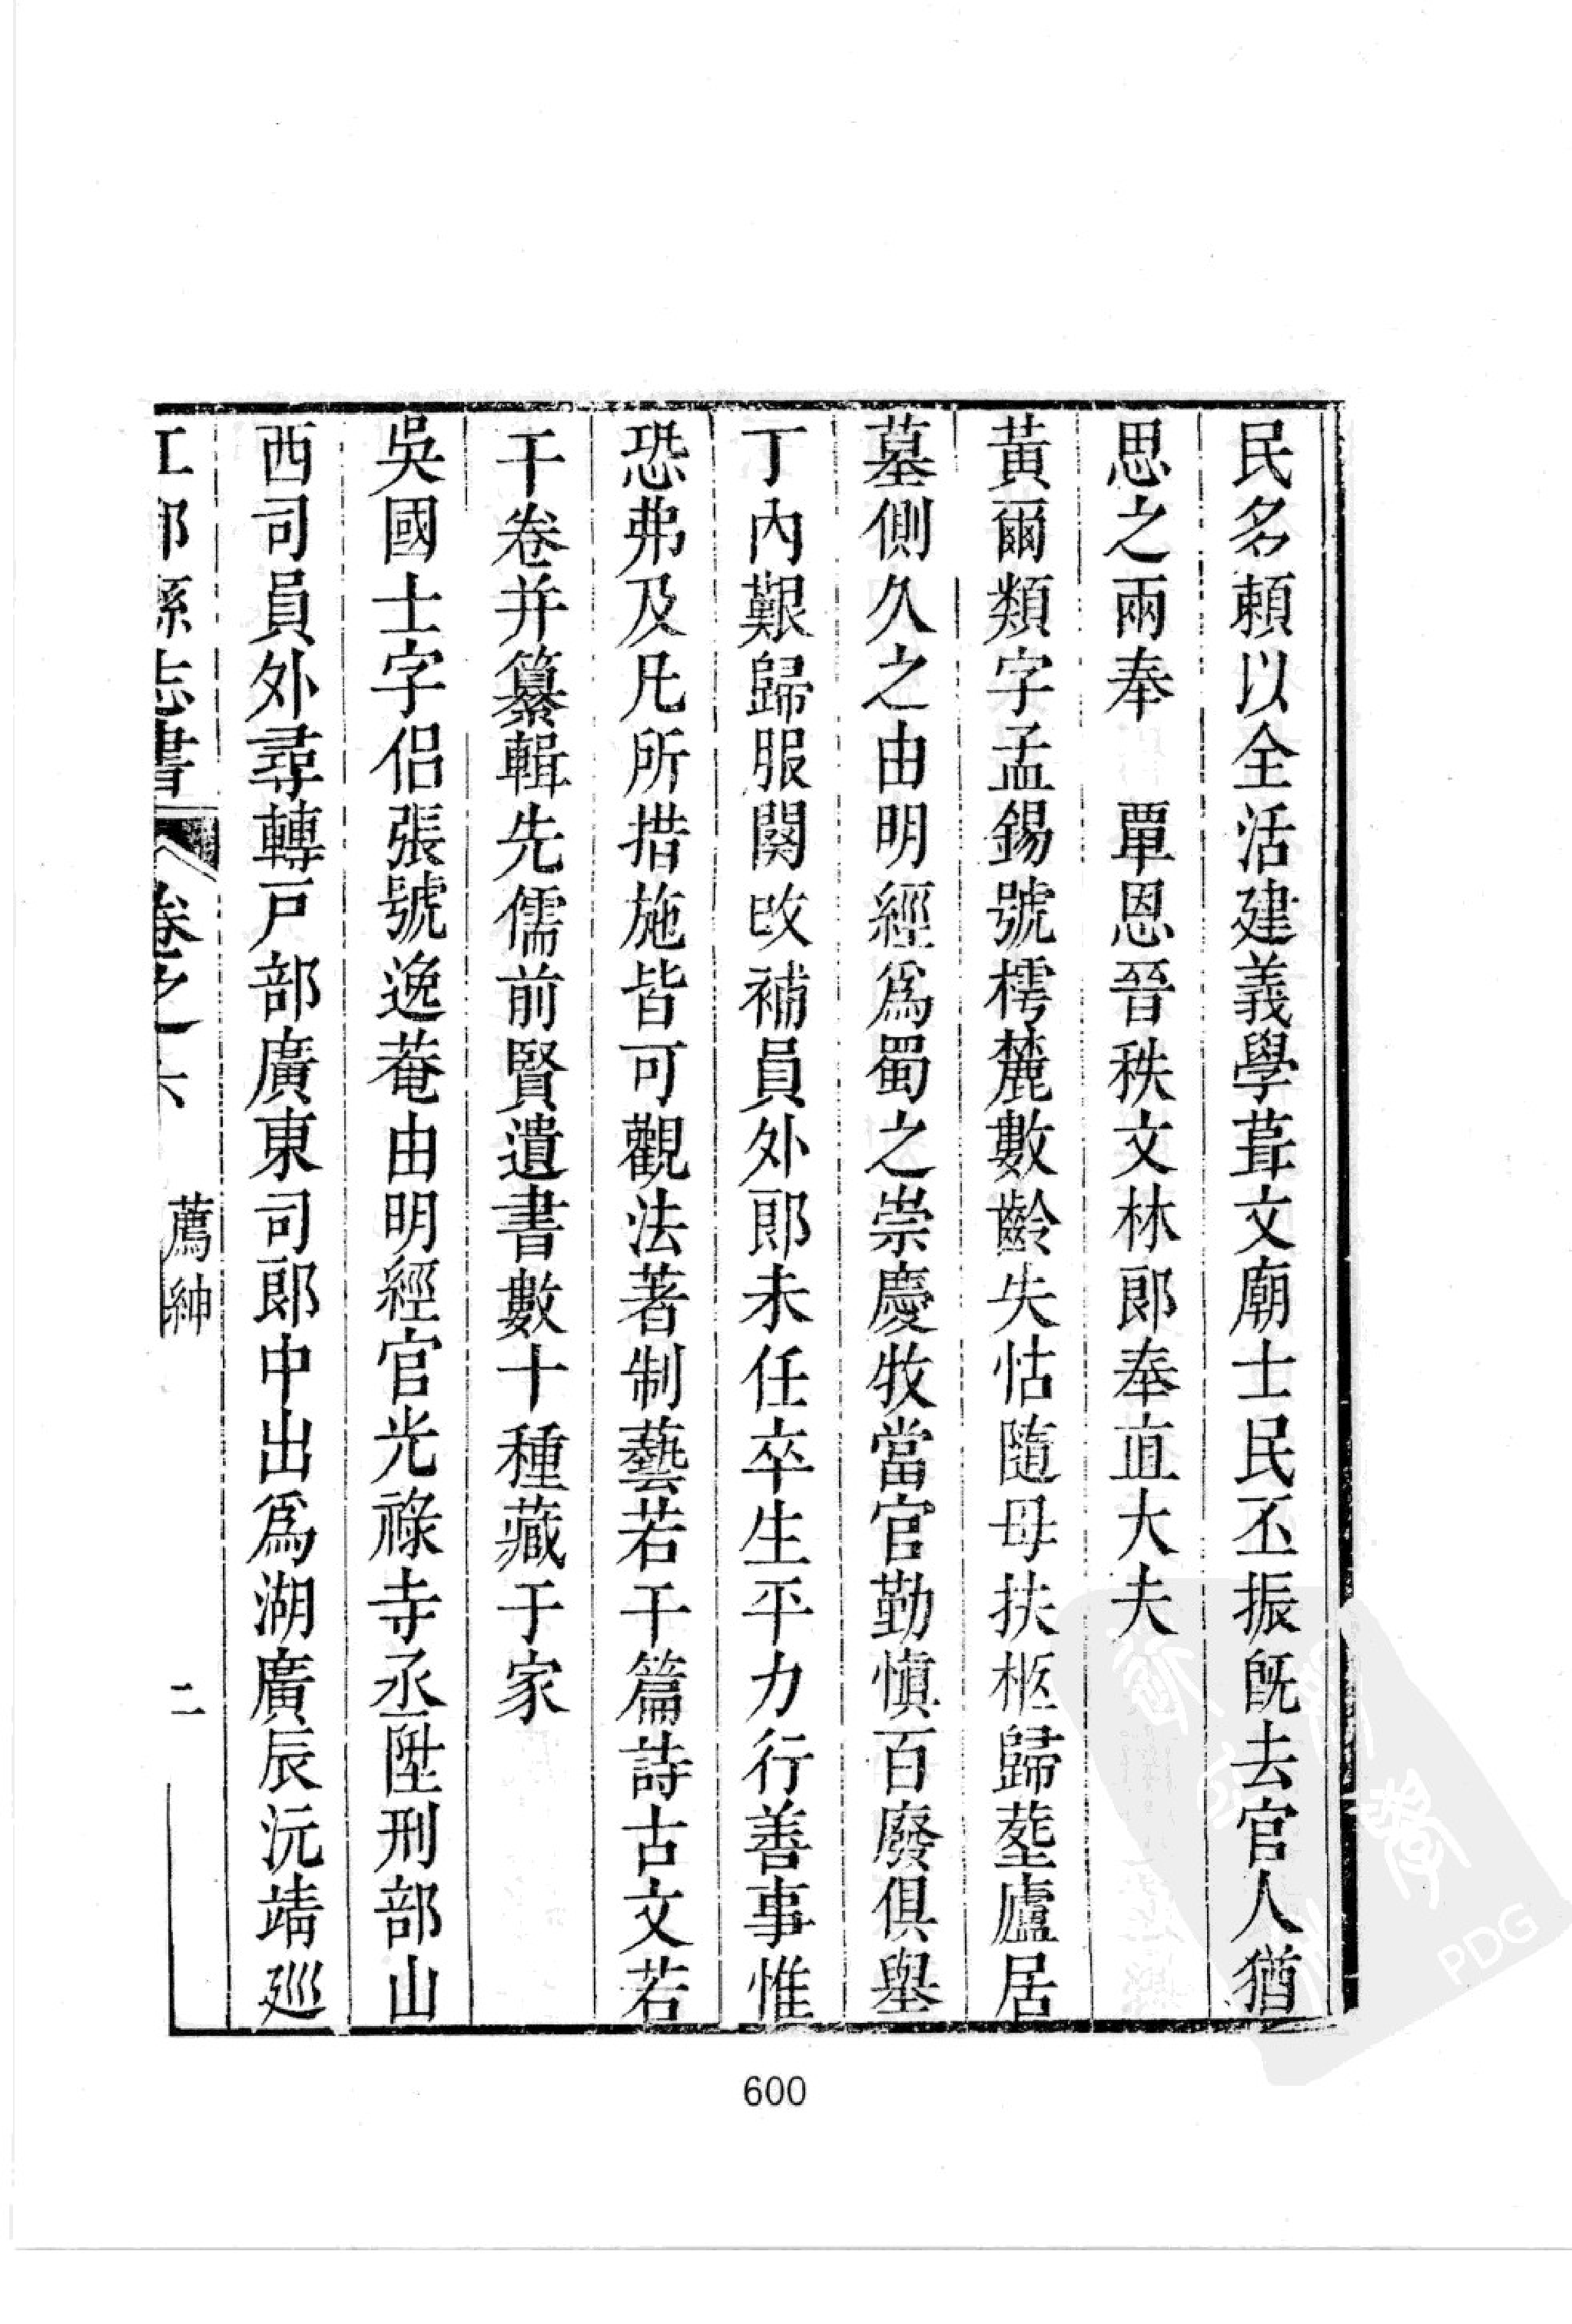 民名頼以全活建義學葺文廟士民丕振旣去官人猶
思之兩奉　覃恩晉秩文林郎奉直大夫
黃爾類字孟錫號樗麓數齡失怙隨母扶柩歸塟廬居
墓側久之由明經爲蜀之崇慶牧當官勤慎百廢俱舉
丁內艱歸服闋攺補員外郎未任卒生平力行善事惟
恐弗及凡所措施皆可觀法著制藝若干篇詩古文若
干卷并纂輯先儒前賢遺書數十種藏于家
吳國士字侣張號逸菴由明經官光祿寺丞陞刑部山
西司員外尋轉戸部廣東司郎中出爲湖廣辰沅靖廵
江都縣志書　卷之六　薦紳　二
600
PDG